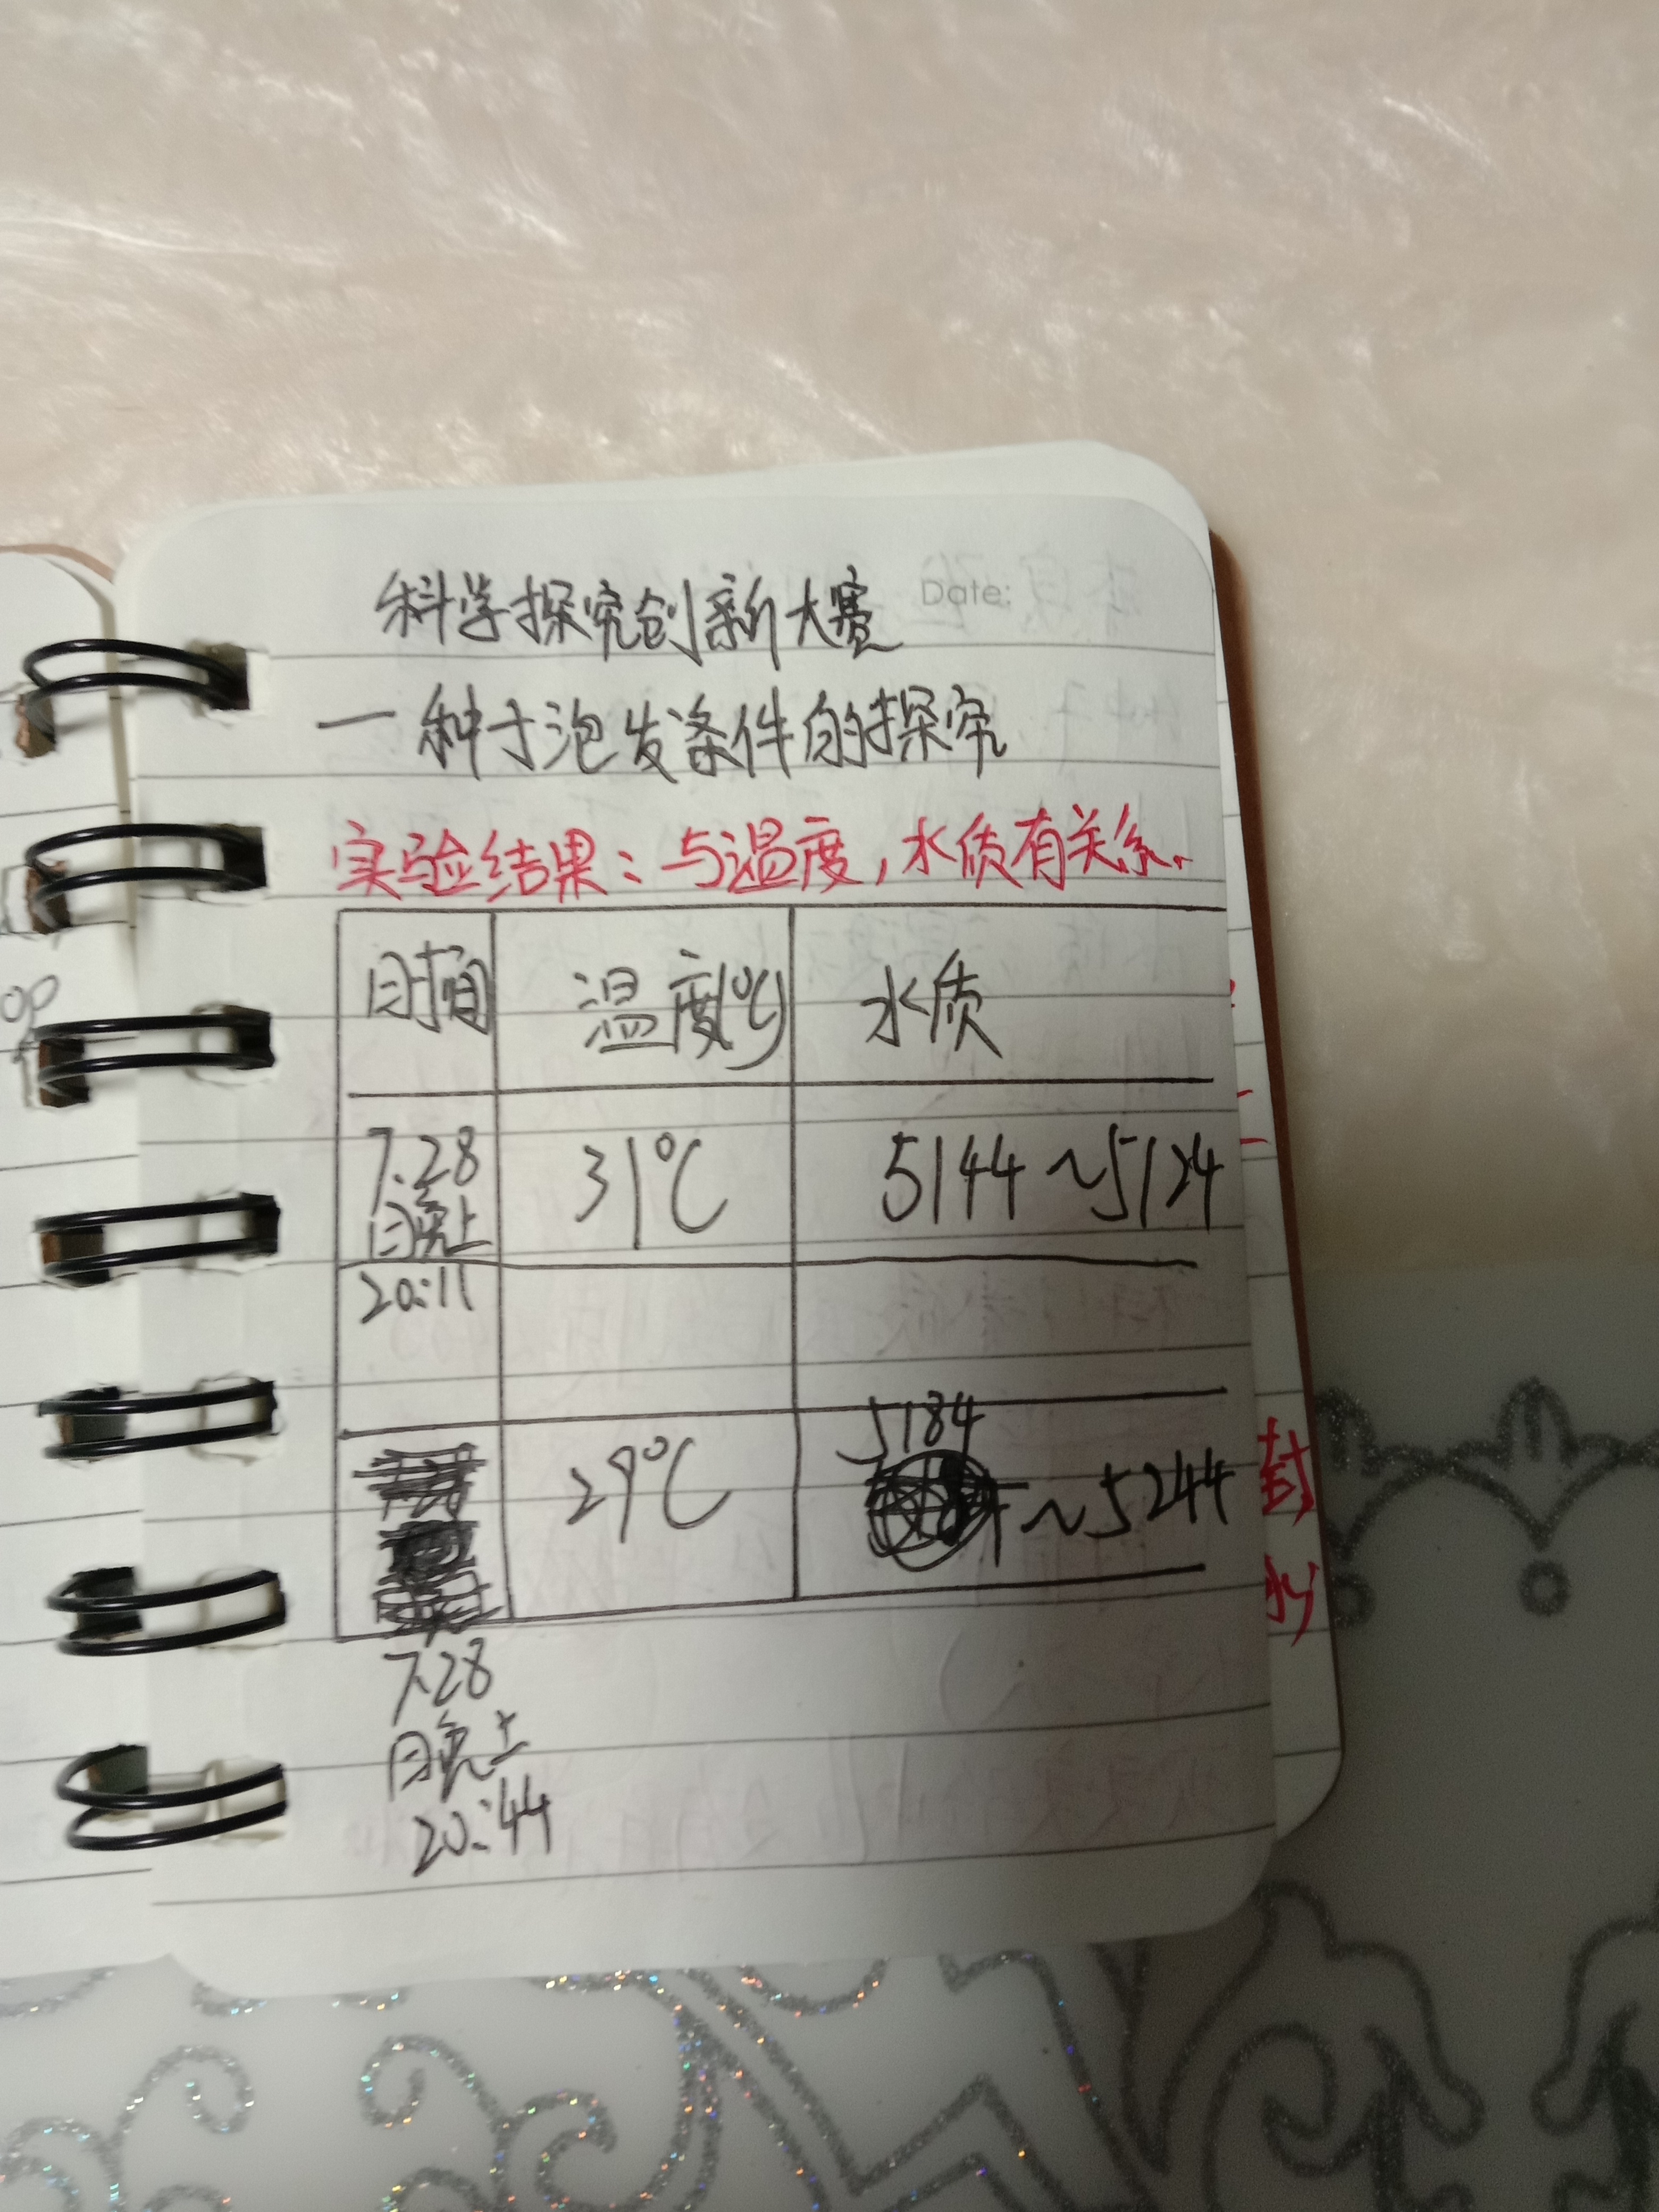 Date:
科学探究创新大赛
一种子泡发条件的探究
实验结果：与温度，水质有关系.
时间 温度(℃) 水质
7.28 31℃ 5144～5124
日晚上
20:11
29℃ 5184～5244
7.28
日晚上
20:44
封